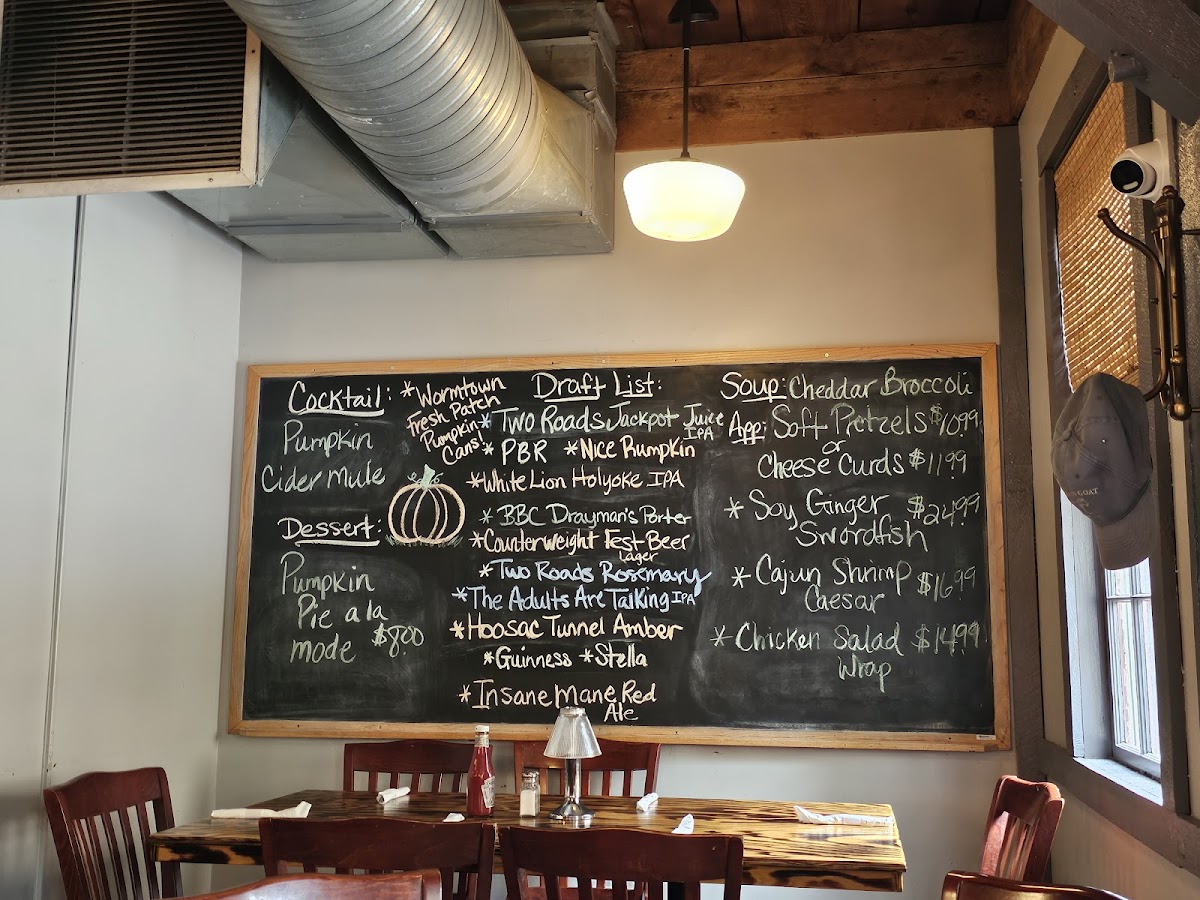 Cocktail:
Pumpkin
Cider Mule
Dessert:
Pumpkin
Pie a la
mode $8.00
*Wormtown
Fresh Patch
Pumpkin
Cans!
Draft List:
*Two Roads Jackpot Juice
IPA
*PBR *Nice Rumpkin
*White Lion Holyoke IPA
*BBC Drayman's Porter
*Counterweight Fest Beer
Lager
*Two Roads Rosemary
*The Adults Are Talking IPA
*Hoosac Tunnel Amber
*Guinness *Stella
*Insane Mane Red
Ale
Soup: Cheddar Broccoli
App: Soft Pretzels $10.99
or
Cheese Curds $11.99
*Soy Ginger $24.99
Swordfish
*Cajun Shrimp $16.99
Caesar
*Chicken Salad $14.99
Wrap
GOAT